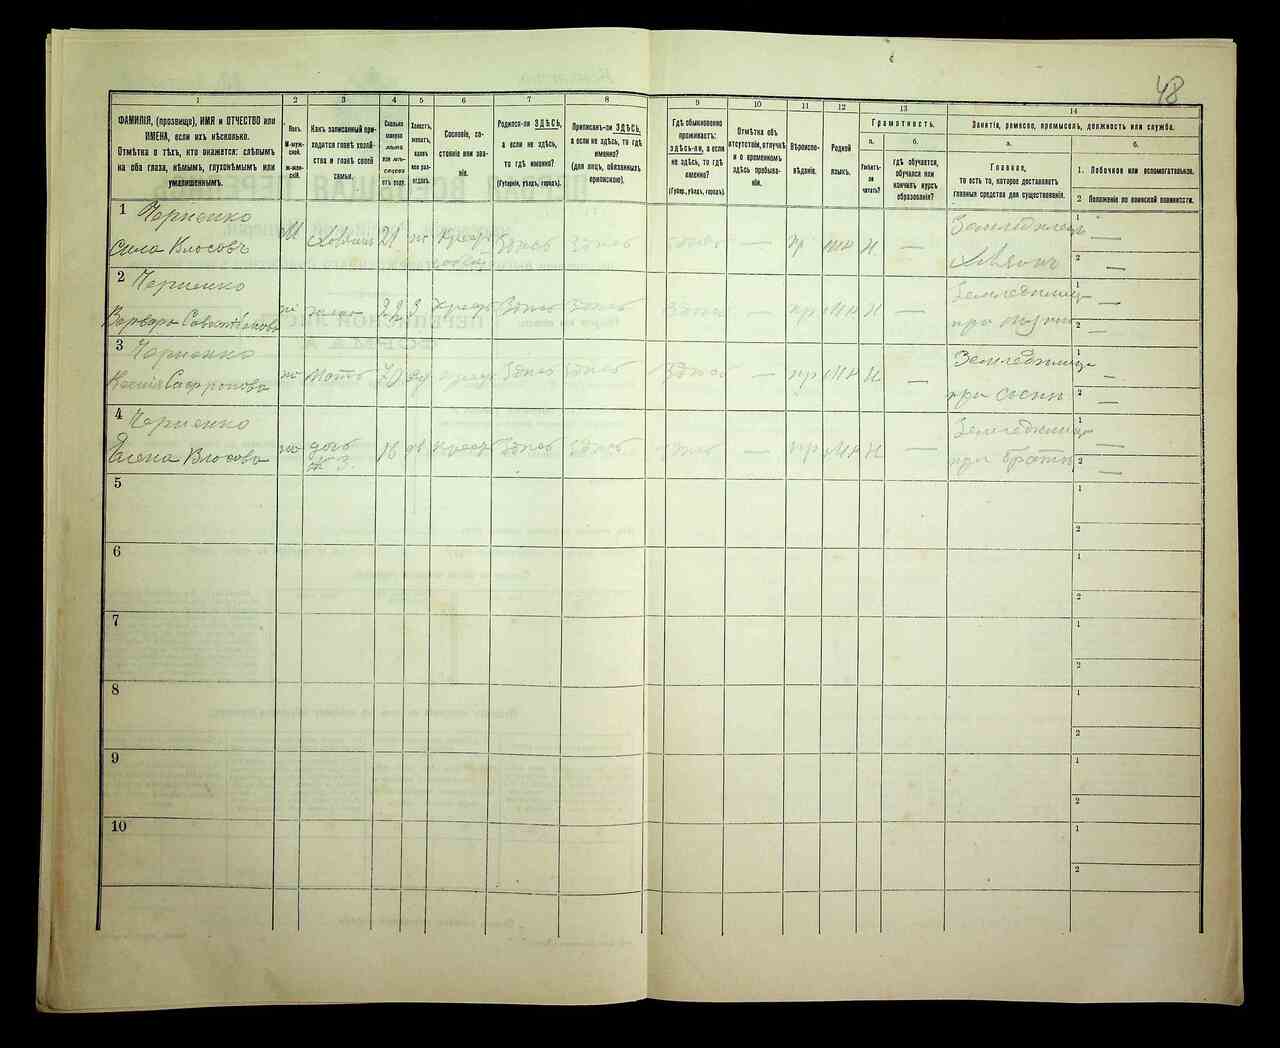 48
1 2 3 4 5 6 7 8 9 10 11 12 13 14
ФАМИЛІЯ, (прозвище), ИМЯ и ОТЧЕСТВО или
ИМЕНА, если ихъ нѣсколько.
Отмѣтка о тѣхъ, кто окажется: слѣпымъ
на оба глаза, нѣмымъ, глухонѣмымъ или
умалишеннымъ.
Полъ.
М-мужской.
Ж-женскій.
Какъ записанный приходится
главѣ хозяйства
и главѣ своей
семьи.
Сколько
минуло
лѣтъ
или мѣсяцевъ
отъ роду.
Холостъ,
женатъ,
вдовъ
или разведенъ.
Сословіе, состояніе
или званіе.
Родился-ли ЗДѢСЬ,
а если не здѣсь,
то гдѣ именно?
(Губернія, уѣздъ, городъ).
Приписанъ-ли ЗДѢСЬ,
а если не здѣсь, то гдѣ
именно?
(для лицъ, обязанныхъ
припискою).
Гдѣ обыкновенно
проживаетъ:
здѣсь-ли, а если
не здѣсь, то гдѣ
именно?
(Губер., уѣздъ, городъ).
Отмѣтка объ
отсутствіи, отлучкѣ
и о временномъ
здѣсь пребываніи.
Вѣроисповѣданіе.
Родной
языкъ.
Грамотность.
а.
Умѣетъ-ли
читать?
б.
гдѣ обучается,
обучался или
кончилъ курсъ
образованія?
Занятія, ремесло, промыселъ, должность или служба.
а.
Главное,
то есть то, которое доставляетъ
главныя средства для существованія.
б.
1. Побочное или вспомогательное.
2 Положеніе по воинской повинности.
1 Черненко М Хозяинъ 21 ж Крест Здѣсь Здѣсь Здѣсь — пр мн Н — Земледѣлецъ 1 —
Сила Власовъ Хозяинъ 2 —
2 Черненко
Варвара жена 22 з Крест Здѣсь Здѣсь Здѣсь — пр мн Н — Земледѣлица 1 —
при мужѣ 2 —
3 Черненко
Ксенія мать вд Здѣсь Здѣсь Здѣсь — пр мн Н — Земледѣлица 1 —
при сынѣ 2 —
4 Черненко
Елена Власова дочь 16 дв Крест Здѣсь Здѣсь Здѣсь — пр мн Н — Земледѣлица 1 —
№ 3. при братѣ 2 —
5 1
2
6 1
2
7 1
2
8 1
2
9 1
2
10 1
2